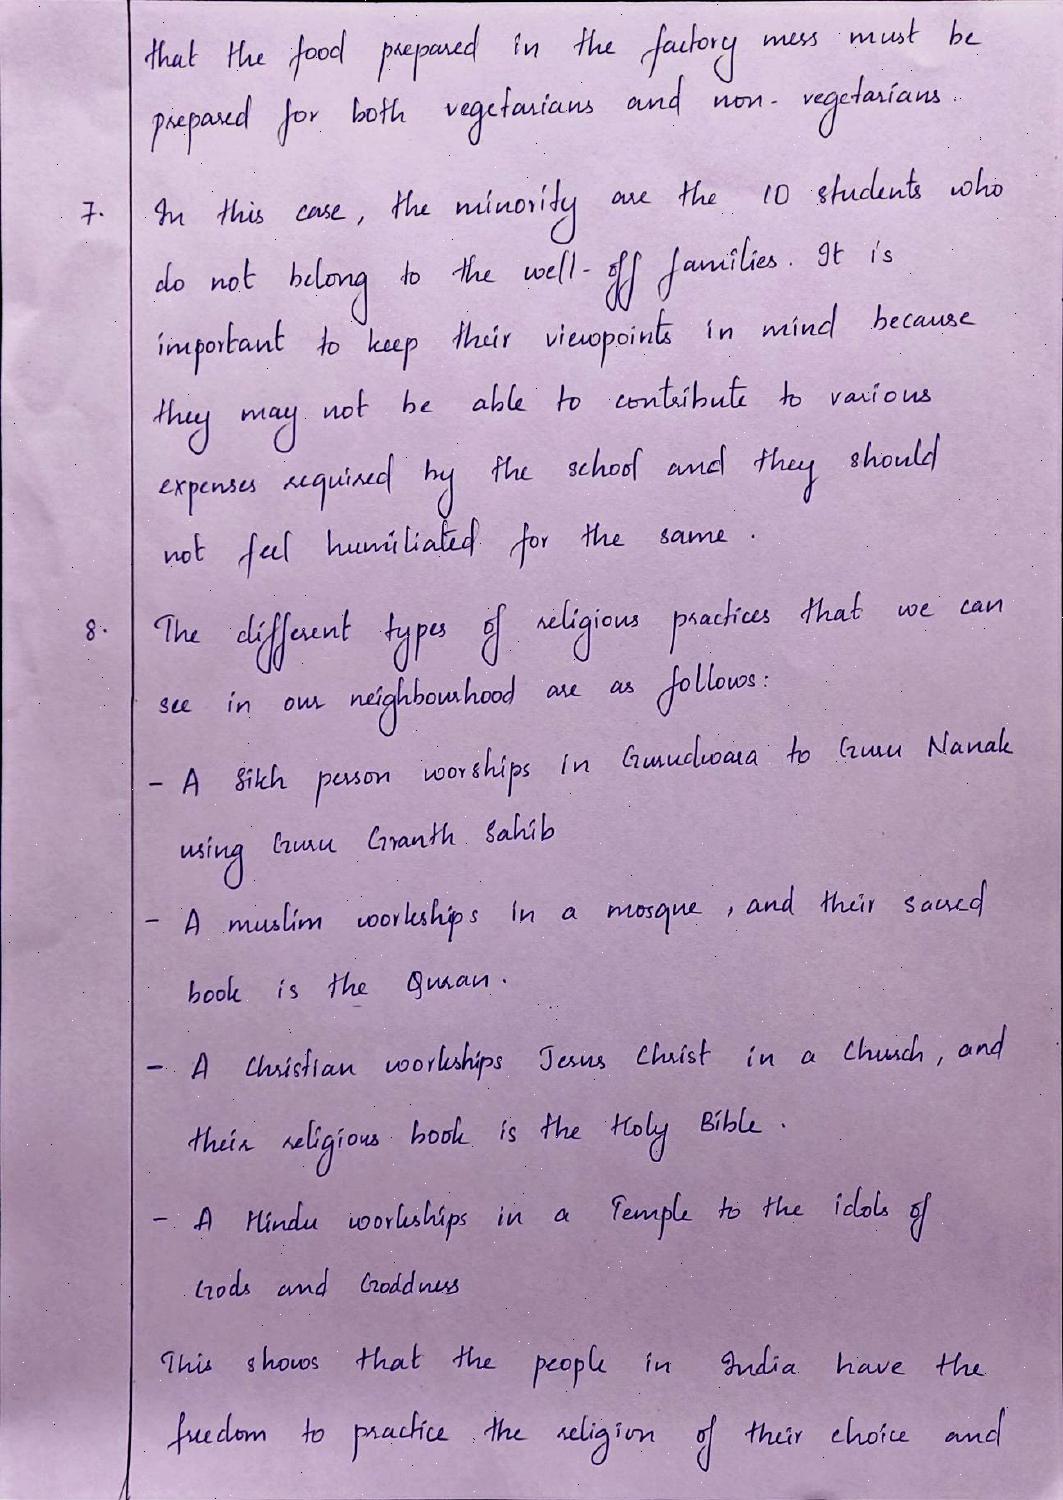 that the food prepared in the factory mess must be
prepared for both vegetarians and non- vegetarians.
7. In this case, the minority are the 10 students who
do not belong to the well-off families. It is
important to keep their viewpoints in mind because
they may not be able to contribute to various
expenses required by the school and they should
not feel humiliated for the same.
8. The different types of religious practices that we can
see in our neighbourhood are as follows:
- A Sikh person worships in Gurudwara to Guru Nanak
using Guru Granth Sahib
- A muslim workships in a mosque, and their sacred
book is the Quran.
- A Christian workships Jesus Christ in a Church, and
their religious book is the Holy Bible.
- A Hindu workships in a Temple to the idols of
Gods and Goddness
This shows that the people in India have the
freedom to practice the religion of their choice and